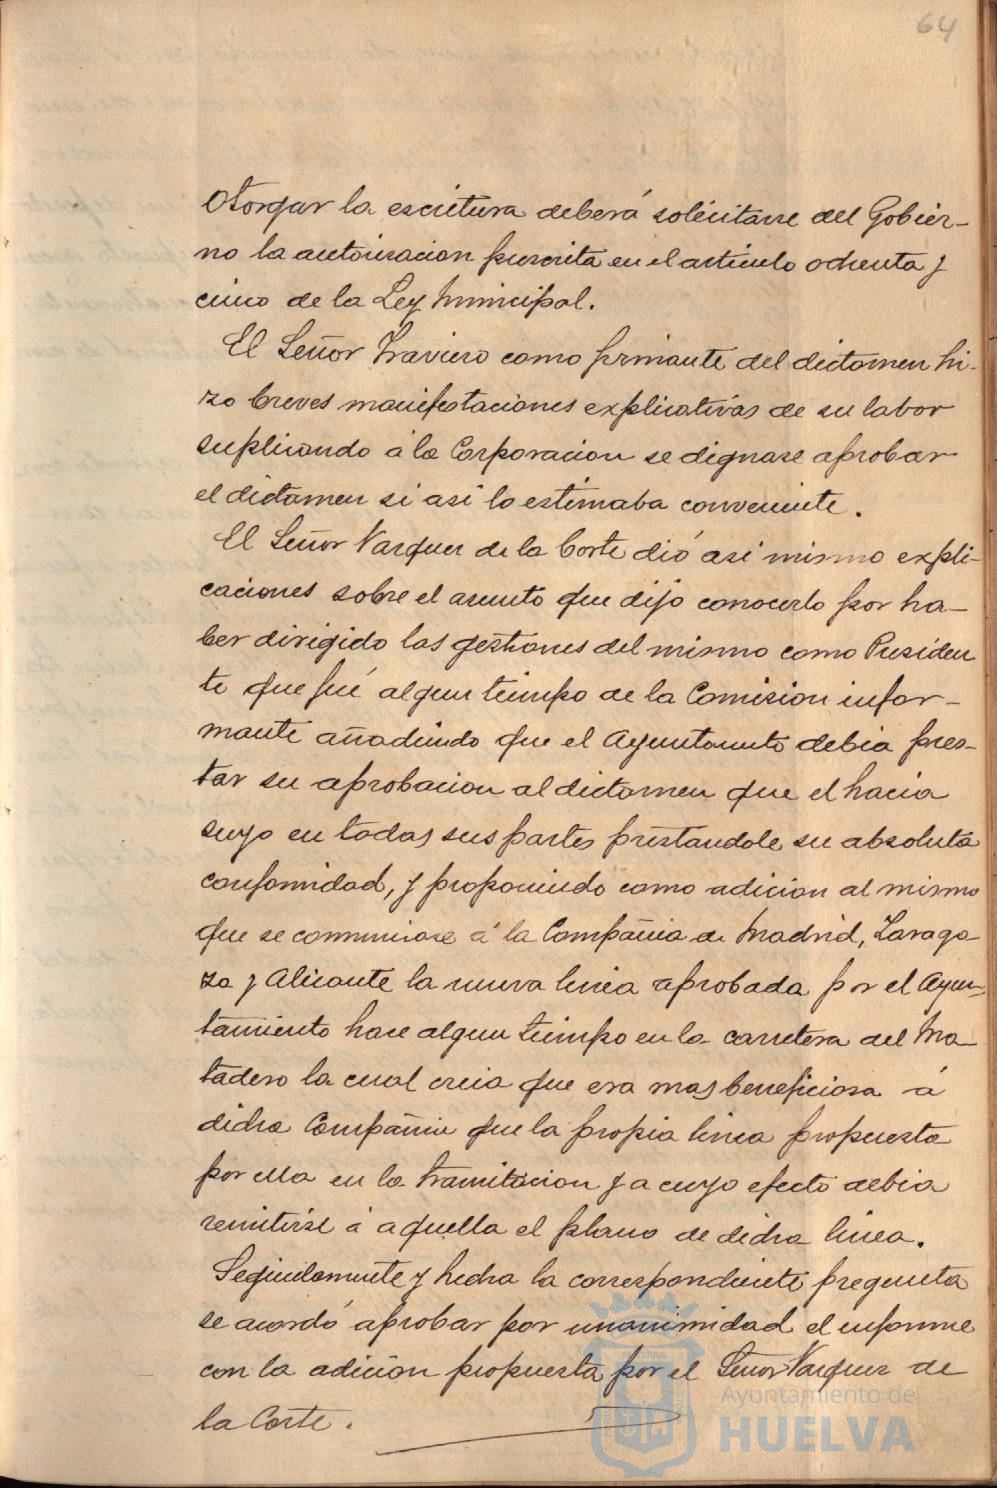 64
Otorgar la escritura deberá solicitarse del Gobier-
no la autorizacion prescrita en el articulo ochenta y
cinco de la Ley Municipal.
El Señor Traviero como firmante del dictamen hi-
zo breves manifestaciones explicativas de su labor
suplicando á la Corporacion se dignase aprobar
el dictamen si asi lo estimaba conveniente.
El Señor Vazquez de la Corte dió asi mismo expli-
caciones sobre el asunto que dijo conocerlo por ha-
ber dirigido las gestiones del mismo como Presiden
te que fué algun tiempo de la Comision infor-
mante añadiendo que el Ayuntamiento debia pres-
tar su aprobacion al dictamen que el hacia
suyo en todas sus partes prestandole su absoluta
conformidad, y proponiendo como adicion al mismo
que se comunicase á la Compañia de Madrid, Zarago
za y Alicante la nueva linea aprobada por el Ayun-
tamiento hace algun tiempo en la carretera del Ma-
tadero la cual creia que era mas beneficiosa á
dicha Compañia que la propia linea propuesta
por ella en la tramitacion y a cuyo efecto debia
remitirse á aquella el plano de dicha linea.
Seguidamente y hecha la correspondiente pregunta
se acordó aprobar por unanimidad el informe
con la adicion propuesta por el Señor Vazquez de
la Corte.
Ayuntamiento de
HUELVA